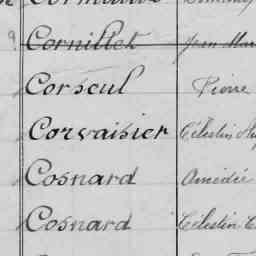 Cornillet Jean Mar
Corseul Pierre
Corvaisier Célestin
Cosnard Amédée
Cosnard Célestin C